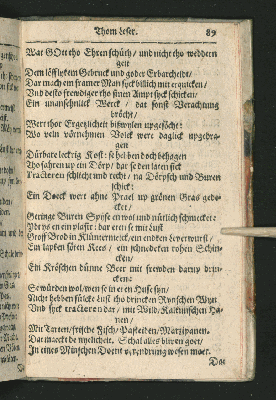 Thom Leser. 89
Wat GOtt tho Ehren schüth / und nicht tho weddern
geit
Dem löfflyken Gebruck und goder Erbarheidt /
Dar mach ein framer Man syck billich mit erquicken /
Und desto frendiger tho sinen Ampt syck schicken /
Ein unanschnlick Werck / dat sonst Verachtung
bröcht /
Wert thor Ergezlicheit bißwylen upgesöcht:
Wo veln vörnehmen Volck werd dagelick upgedra-
gen
Dürbare leckrig Kost: se hebben doch behagen
Tho fahren up ein Dörp / dar se den laten sick
Tracteren schlecht und recht / na Dörpsch und Buren
schick:
Ein Doeck wert ahne Prael up grönen Gras gede-
cket /
Geringe Buren Spise en wol und nütlich schmecket:
Perys en ein plasir: dar eten se mit Lust
Groff Brod in Klümternicht / en ein Leverwurst /
Ein lapken sören Kees / ein schnedeken rohen Schin-
cken /
Ein Kröschen dünne Beer mit frenden darup drin-
cken:
Se würden wol / wen se in eren Huse syn /
Nicht hebben sülcke Lust tho drincken Rynschen Wyn
Und syck tracteren dar / mit Wild / Kalkunschen Ha-
nen /
Mit Tarten / frische Fisch / Pasteiden / Martzipanen.
Dat maeckt de nyelicheit. Schal alles blyven goet /
In eines Minschen Doent verendring wesen moet.
Dat